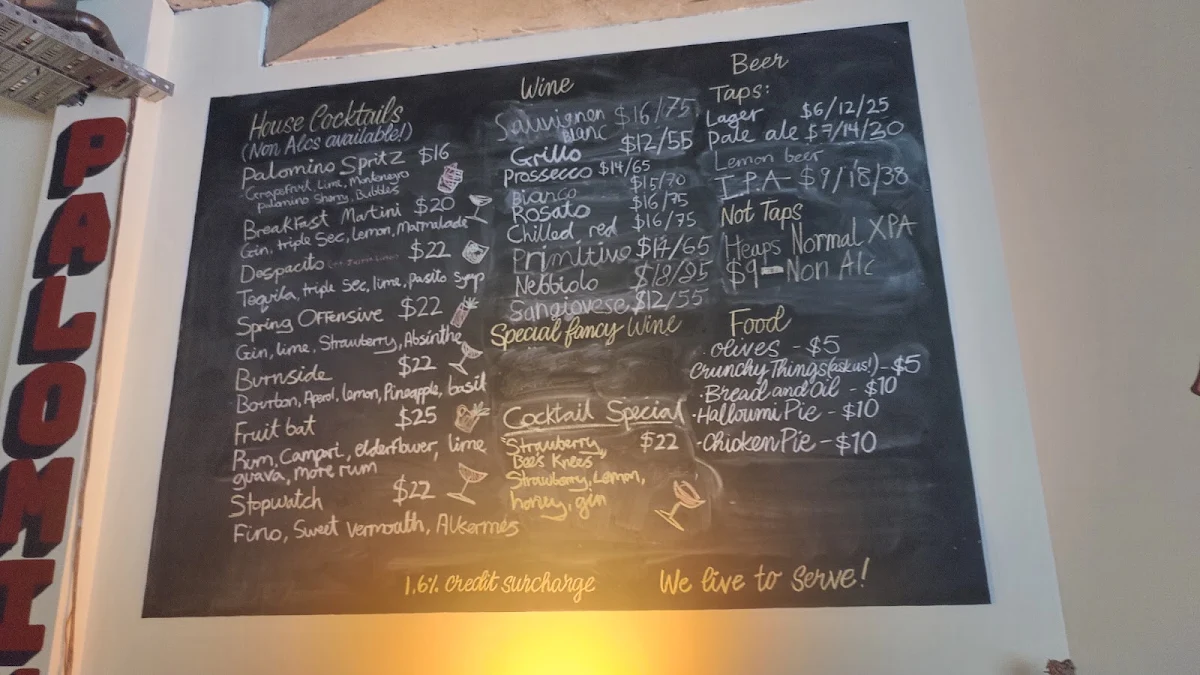 PALOMI
House Cocktails
(Non Alcs available!)
Palomino Spritz $16
Grapefruit, Lime, Montenegro
Palomino Sherry, Bubbles
Breakfast Martini $20
Gin, triple Sec, lemon, Marmalade
Despacito $22
Tequila, triple Sec, lime, Pasito Syrup
Spring Offensive $22
Gin, lime, Strawberry, Absinthe
Burnside $22
Bourbon, Aperol, lemon, Pineapple, basil
Fruit bat $25
Rum, Campari, elderflower, lime
guava, more rum
Stopwatch $22
Fino, Sweet Vermouth, Alkermes
Wine
Sauvignon $16/75
blanc
Grillo $12/55
Prossecco $14/65
Bianco $15/70
Rosato $16/75
Chilled red $16/75
Primitivo $14/65
Nebbiolo $18/85
Sangiovese $12/55
Special fancy Wine
Cocktail Special
Strawberry $22
Bee's Knees
Strawberry, Lemon,
honey, gin
Beer
Taps:
Lager $6/12/25
Pale ale $7/14/30
Lemon beer
I.P.A- $9/18/38
Not Taps
Heaps Normal XPA
$9 - Non Alc
Food
· olives - $5
Crunchy Things (ask us!) - $5
· Bread and Oil - $10
· Halloumi Pie - $10
· Chicken Pie - $10
1.6% credit surcharge
We live to Serve!